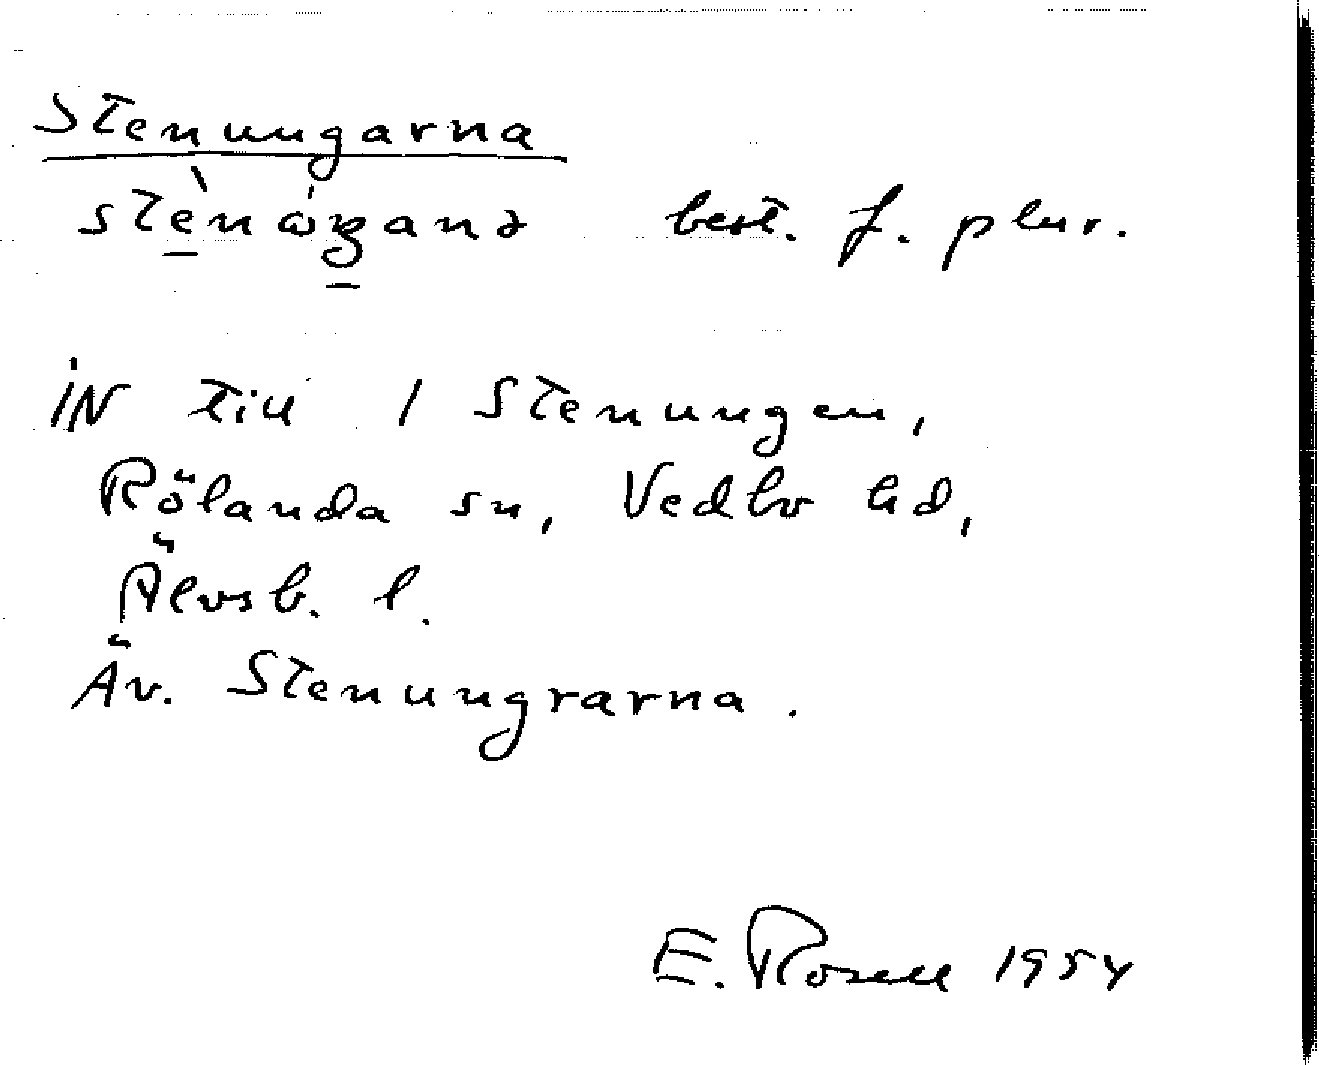 Stenungarna
best. f. plur.
IN till 1 Stenungen,
Rölanda sn, Vedbo hd,
Älvsb. l.
Äv. Stenungrarna.
E. Rosell 1954